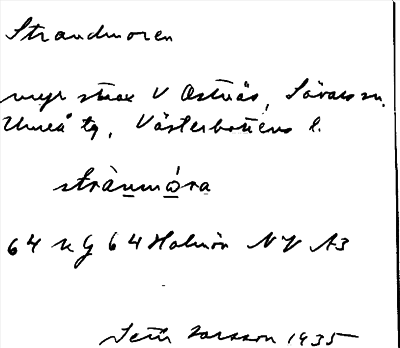 Strandmoren
myr strax V Ostnäs, Sävars sn.
Umeå tg, Västerbottens l.
strànmó̀ra
64 u g 64 Holmön NV A3
Setr Larsson 1935